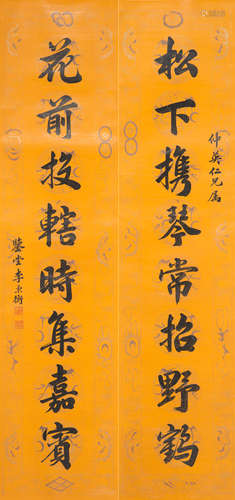 松下携琴常招野鹤
仲英仁兄属
花前投辖時集嘉賓
鑒堂李